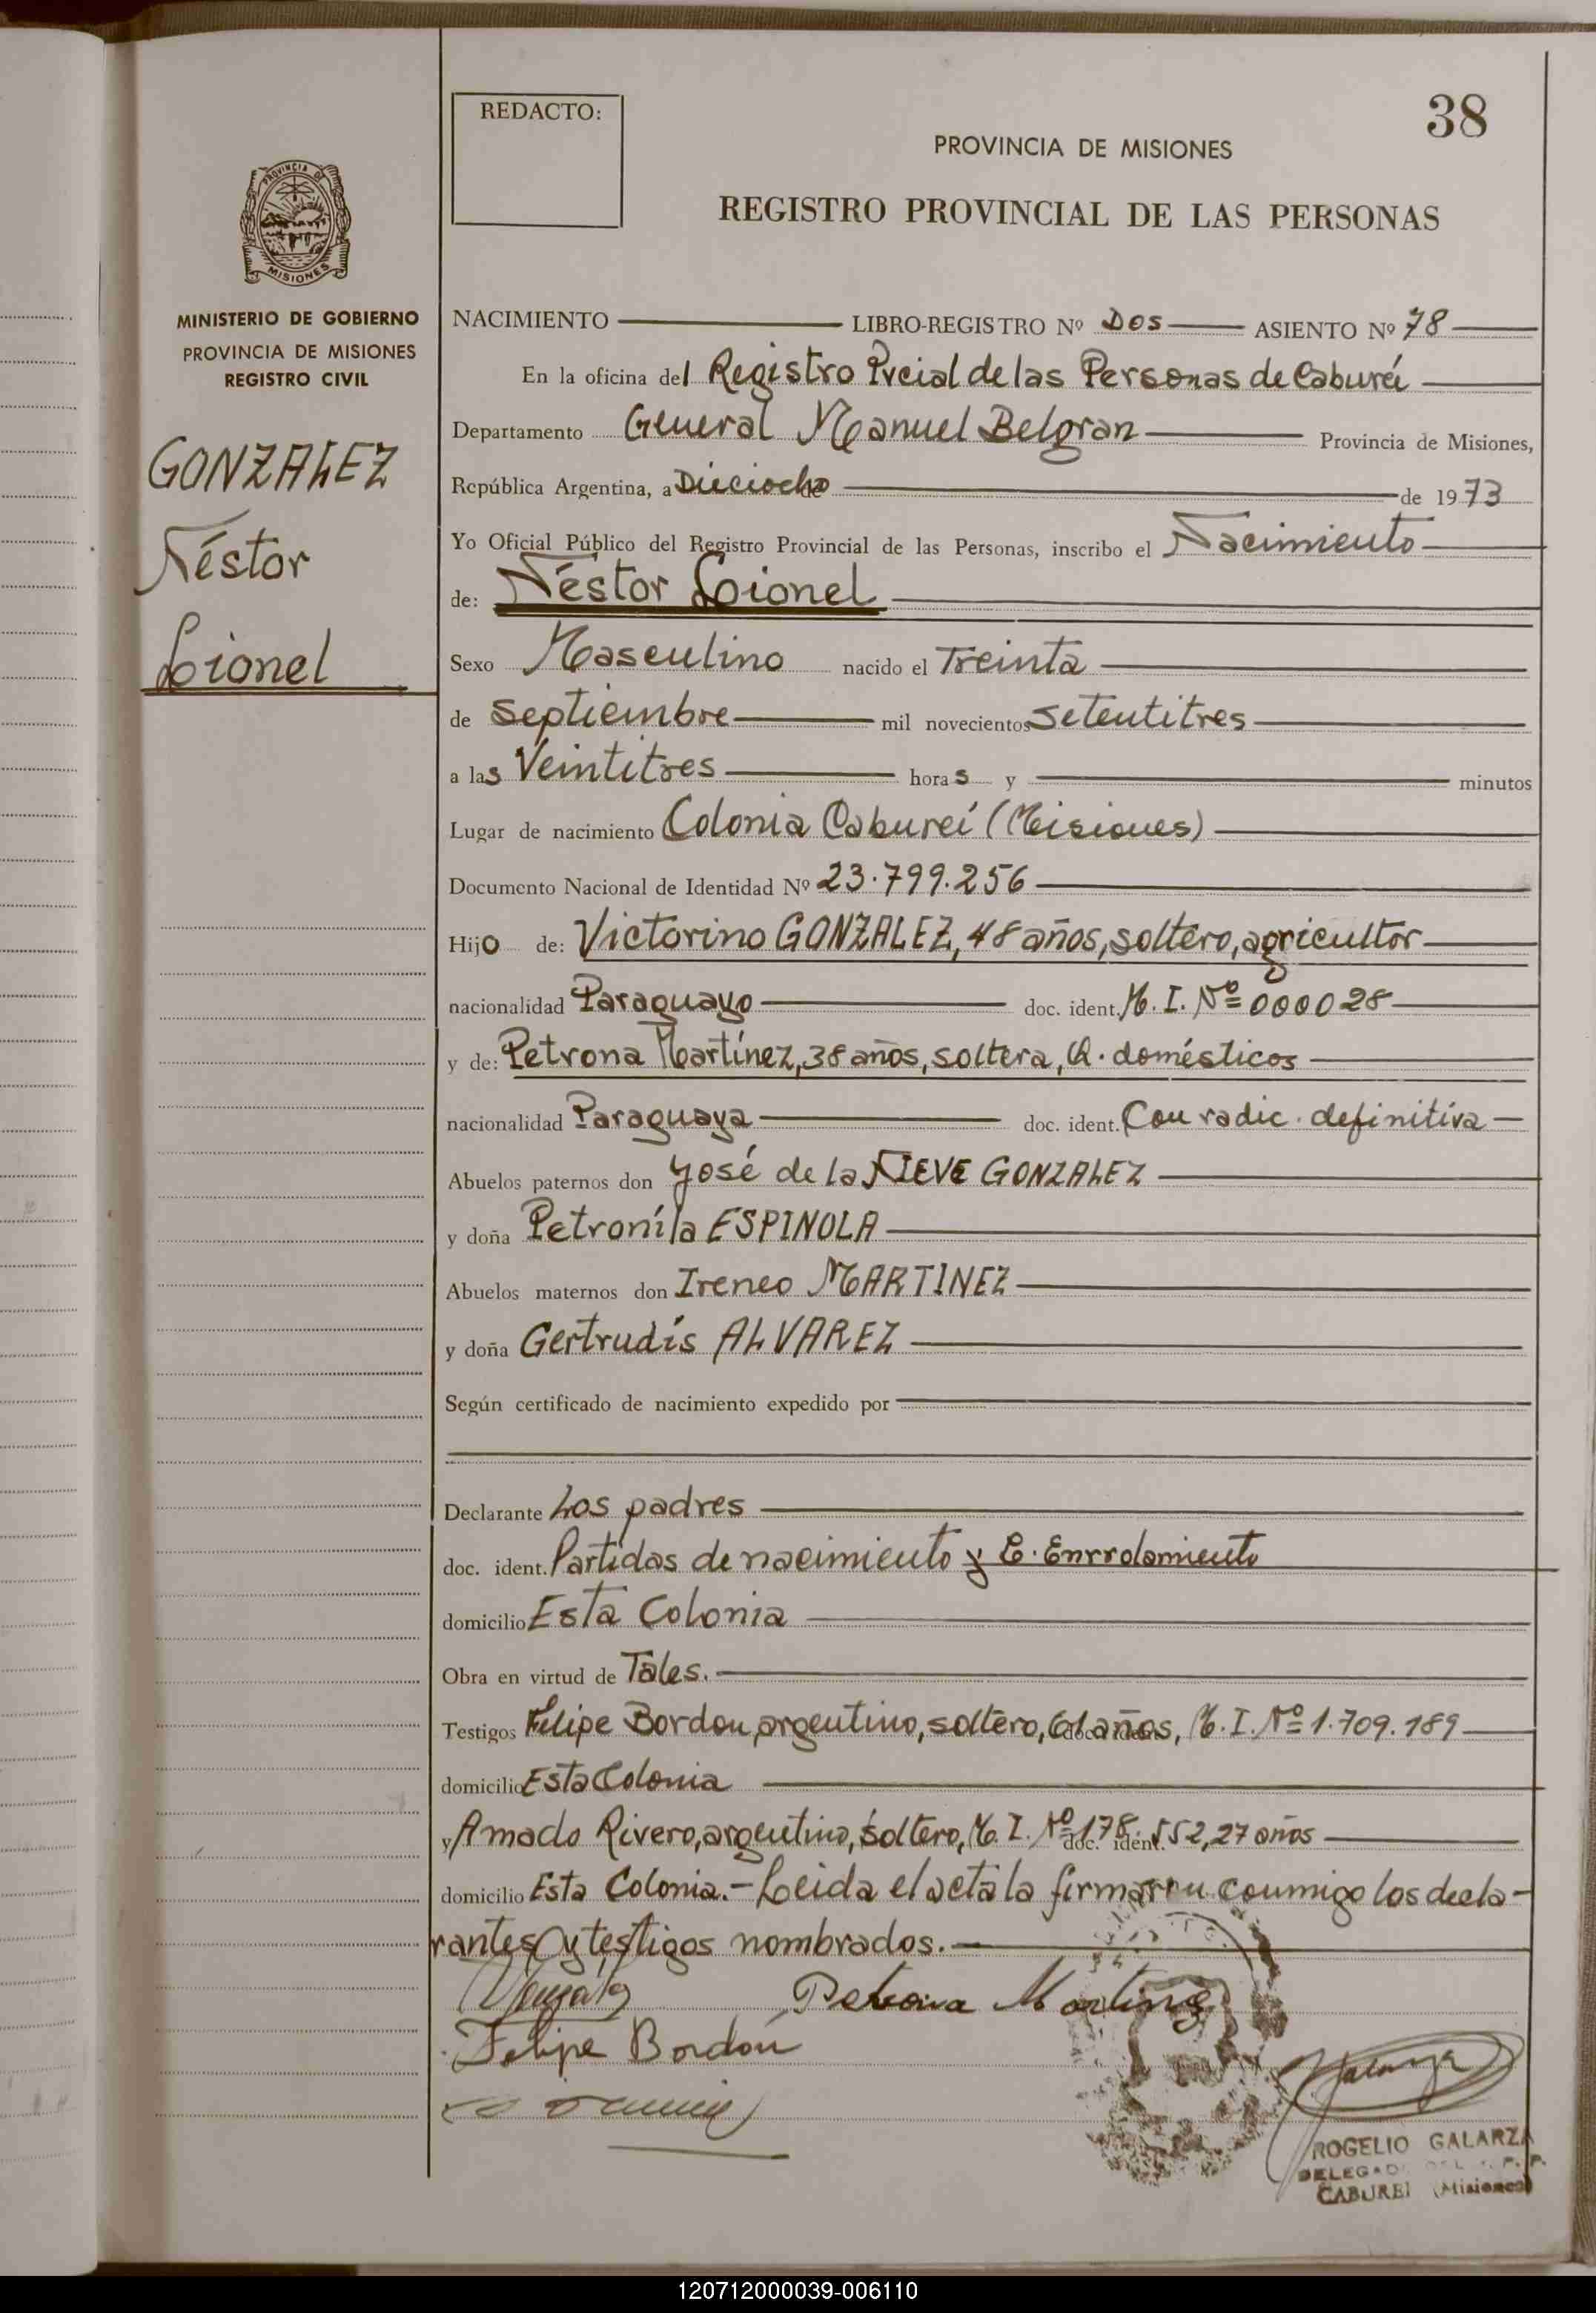 38
REDACTO:
PROVINCIA DE MISIONES
REGISTRO PROVINCIAL DE LAS PERSONAS
PROVINCIA DE
MISIONES
MINISTERIO DE GOBIERNO
PROVINCIA DE MISIONES
REGISTRO CIVIL
GONZALEZ
Néstor
Lionel
NACIMIENTO LIBRO-REGISTRO Nº DOS ASIENTO Nº 78
En la oficina del Registro Pvcial de las Personas de Caburéi
Departamento General Manuel Belgran Provincia de Misiones,
República Argentina, a Dieciocho de 1973
Yo Oficial Público del Registro Provincial de las Personas, inscribo el Nacimiento
de: Néstor Lionel
Sexo Masculino nacido el Treinta
de Septiembre mil novecientos setentitres
a las Veintitres horas y minutos
Lugar de nacimiento Colonia Cabureí (Misiones)
Documento Nacional de Identidad Nº 23.799.256
Hijo de: Victorino GONZALEZ, 48 años, soltero, agricultor
nacionalidad Paraguayo doc. ident. M. I. Nº 000028
y de: Petrona Martínez, 38 años, soltera, Q. domésticos
nacionalidad Paraguaya doc. ident. Con radic. definitiva
Abuelos paternos don José de la NIEVE GONZALEZ
y doña Petroníla ESPINOLA
Abuelos maternos don Ireneo MARTINEZ
y doña Gertrudis ALVAREZ
Según certificado de nacimiento expedido por
Declarante Los padres
doc. ident. Partidas de nacimiento y L. Enrrolamiento
domicilio Esta Colonia
Obra en virtud de Tales.
Testigos Felipe Bordon, argentino, soltero, 61 años, M. I. Nº 1.709.189
domicilio Esta Colonia
y Amado Rivero, argentino, soltero, M. I. Nº 178.552, 27 años
domicilio Esta Colonia.- Leida el acta la firman conmigo los decla-
rantes y testigos nombrados.-
Petrona Martinez
Felipe Bordón
Galarza
ROGELIO GALARZA
CABUREI (Misiones)
120712000039-006110